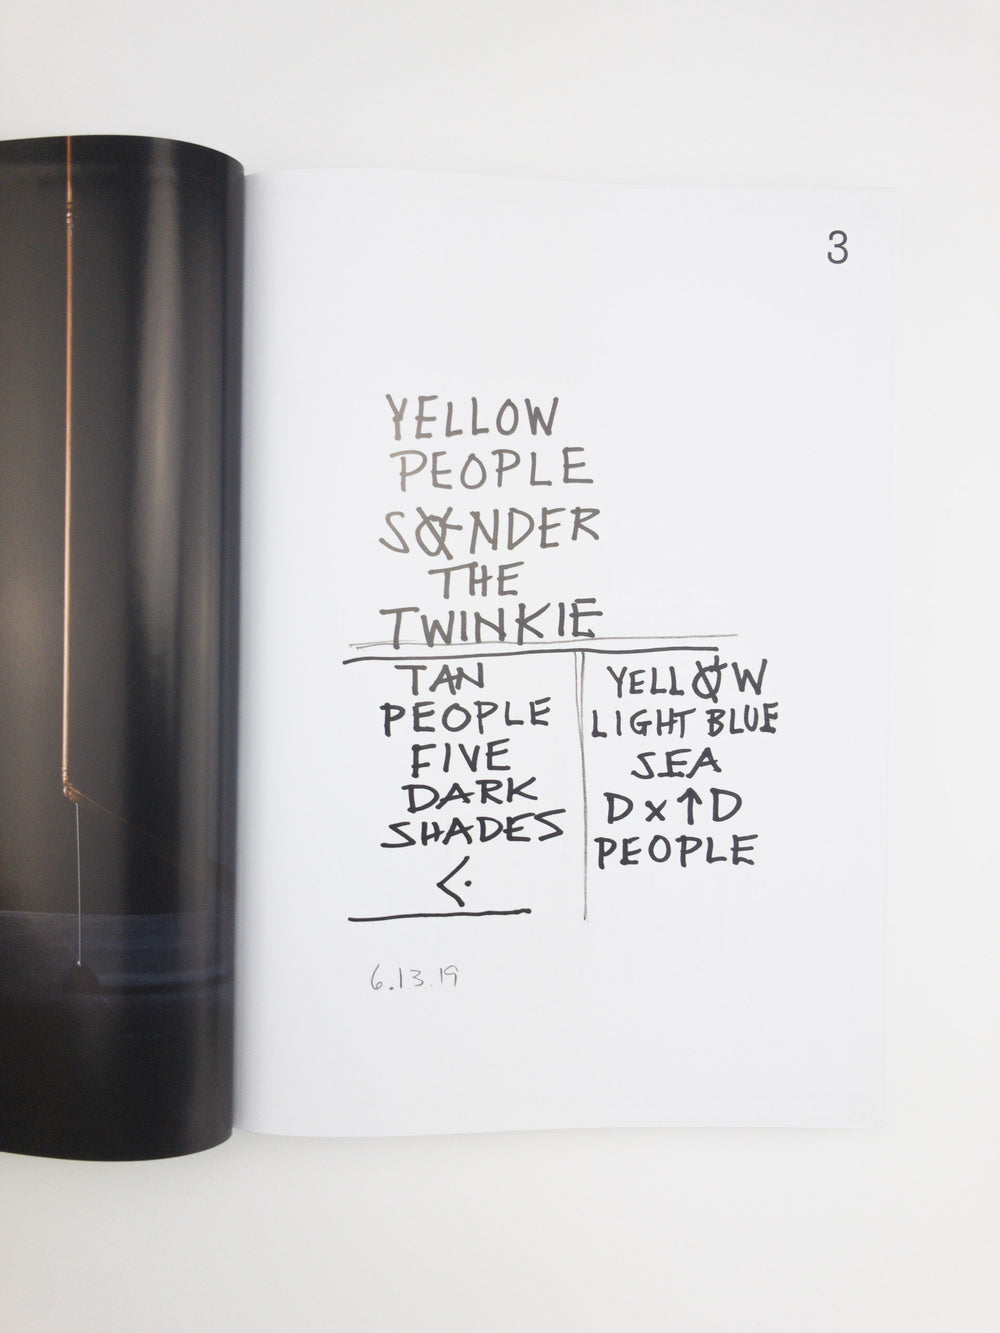 3
YELLOW
PEOPLE
SANDER
THE
TWINKIE
TAN
PEOPLE
FIVE
DARK
SHADES
<·
YELLOW
LIGHT BLUE
SEA
D x ↑ D
PEOPLE
6.13.19